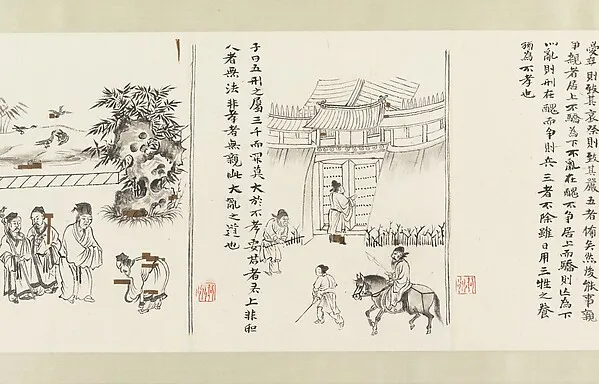 憂喪則致其哀祭則致其嚴五者備矣然後能事親
事親者居上不驕為下不亂在醜不爭居上而驕則亡為下
而亂則刑在醜而爭則兵三者不除雖日用三牲之養
猶為不孝也
子曰五刑之屬三千而罪莫大於不孝要君者无上非聖
人者無法非孝者無親此大亂之道也